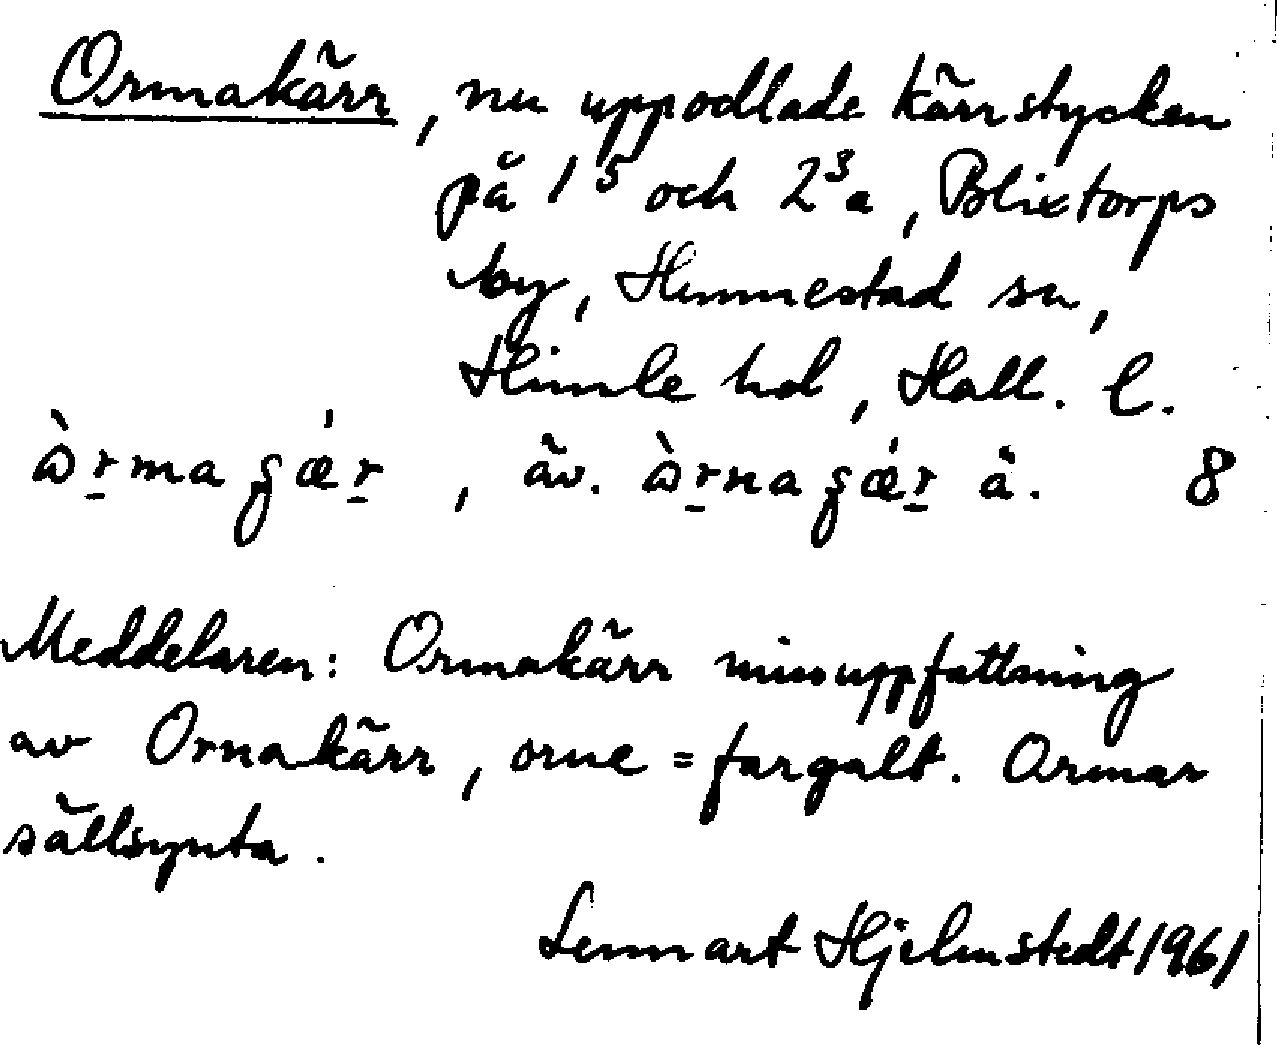 Ormakärr, nu uppodlade kärrstycken
på 1⁵ och 2³a, Blixtorps
by, Hunnestad sn,
Himle hd, Hall. l.
ɷ̀r̠magǽr̠, äv. ɷ̀r̠nagǽr̠ å. 8
Meddelaren: Ormakärr missuppfattning
av Ornakärr, orne = fargalt. Ormar
sällsynta.
Lennart Hjelmstedt 1961